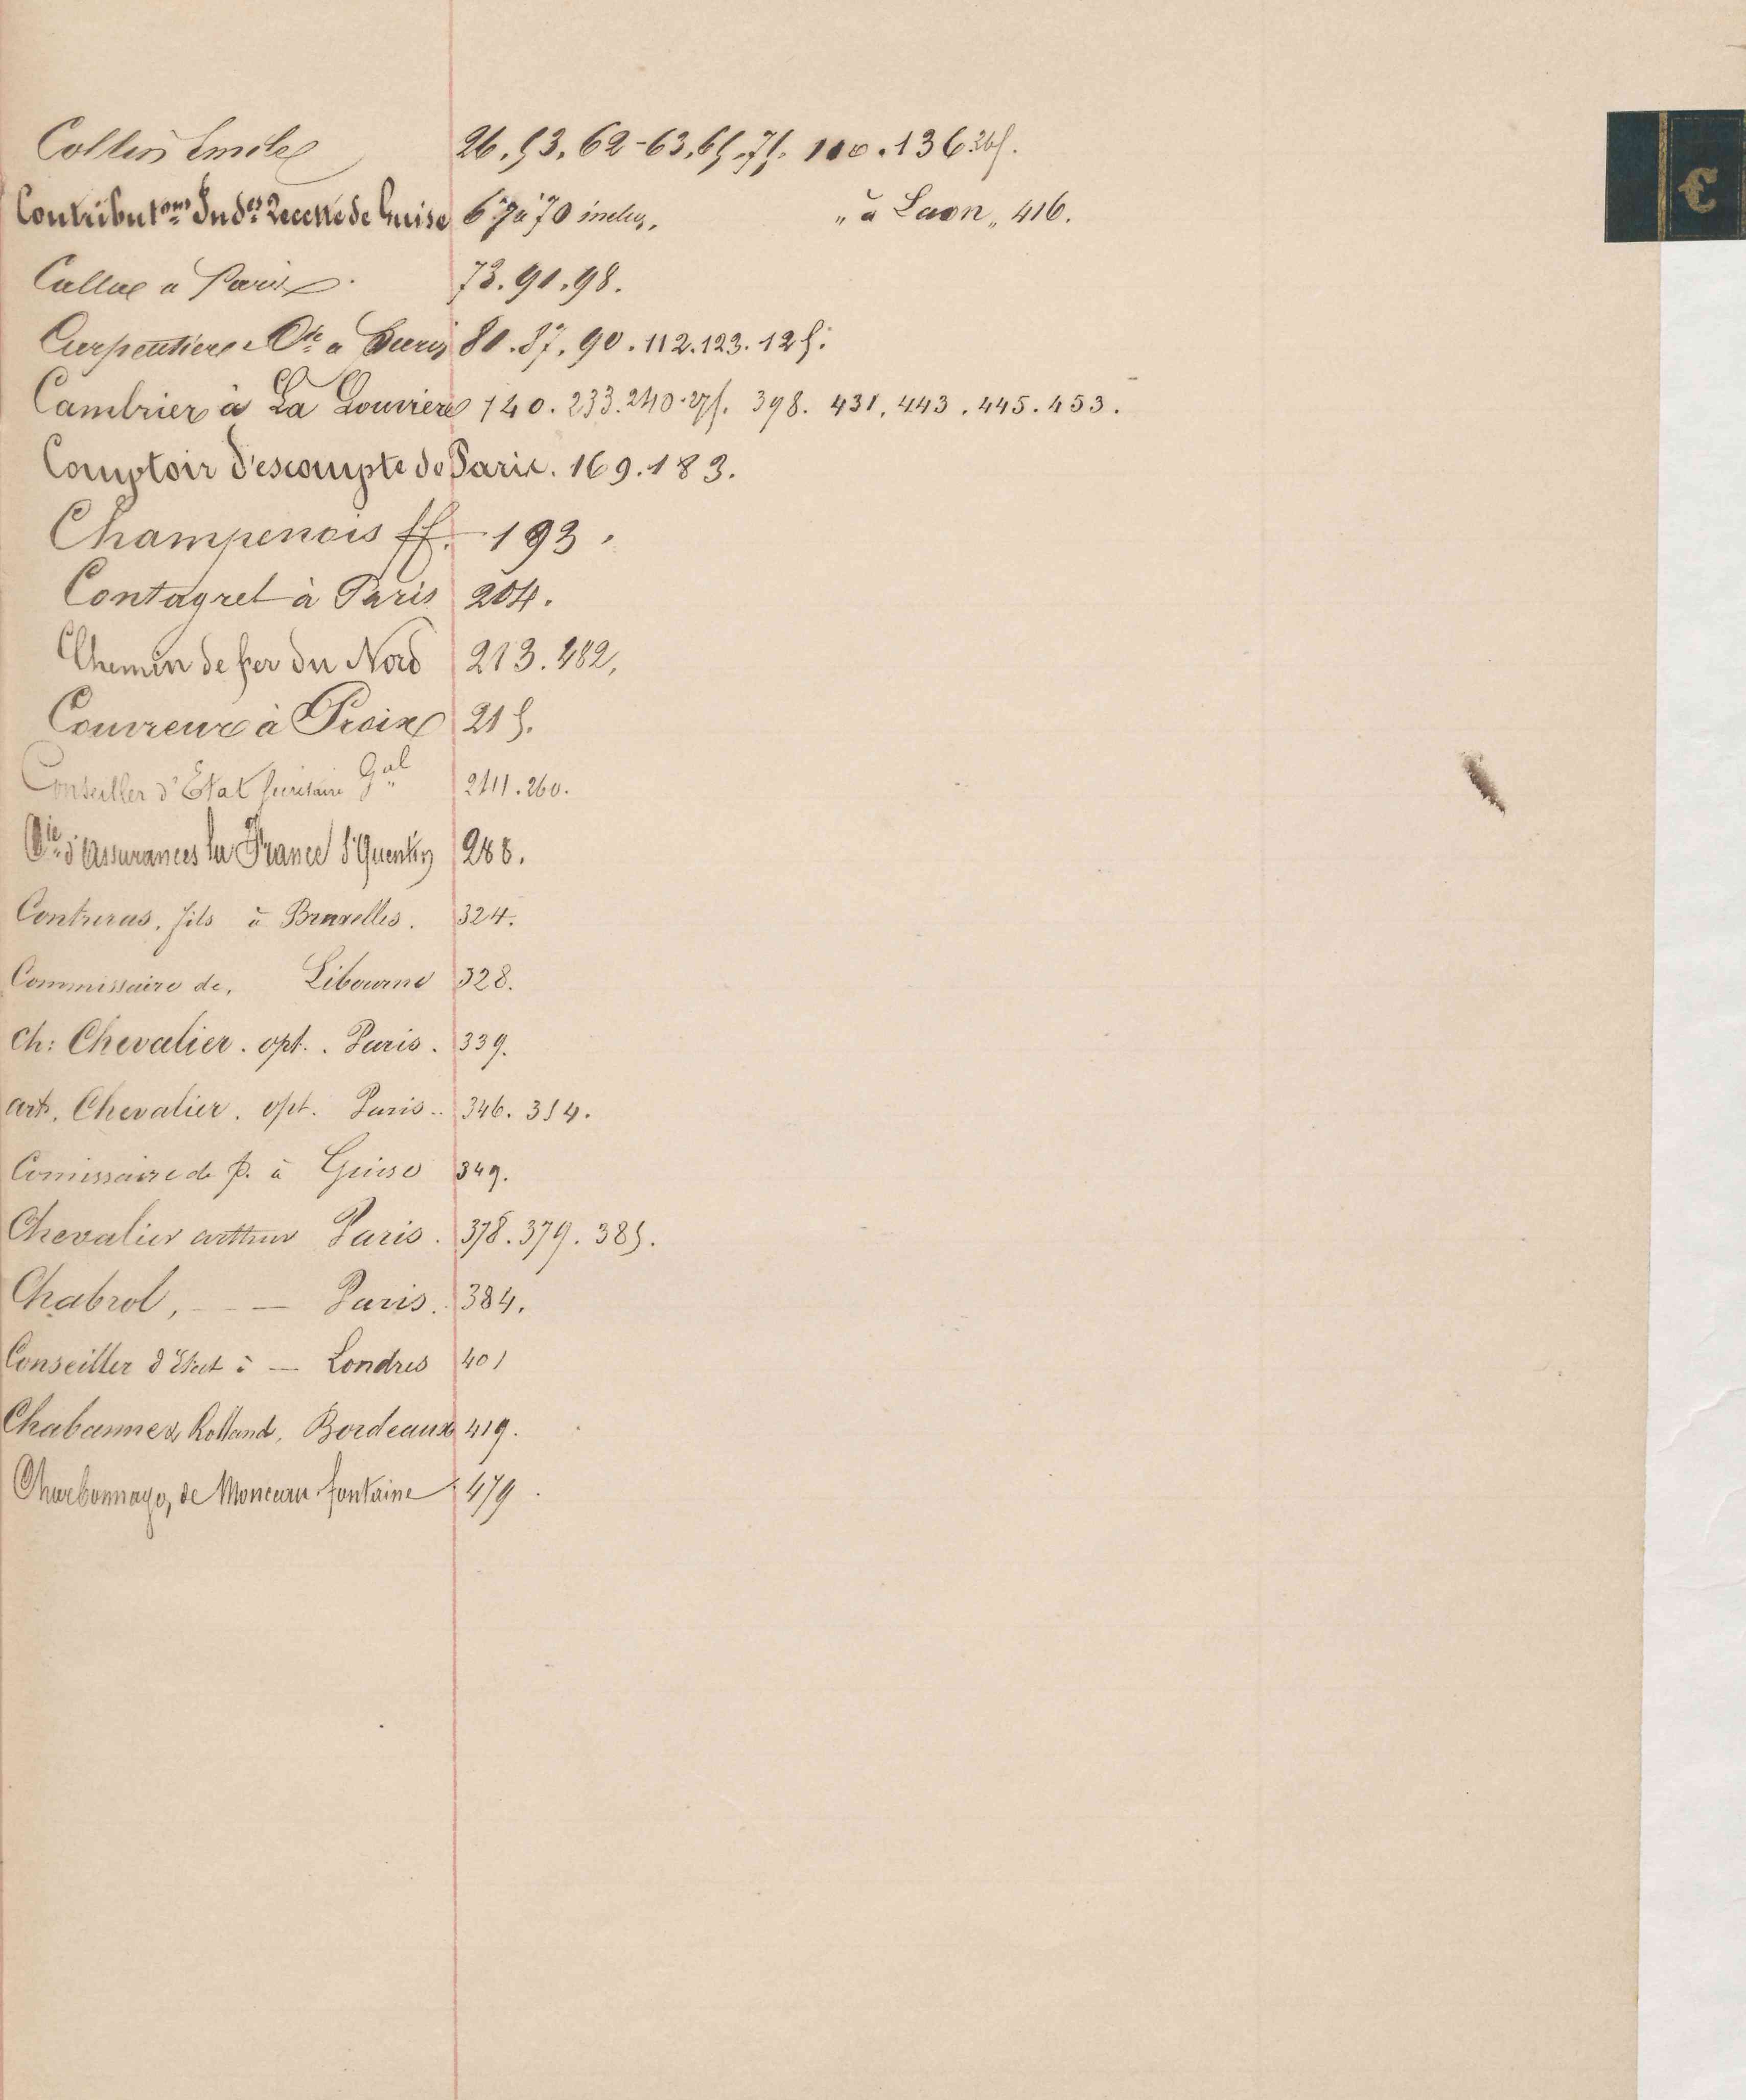 C
Collin Emile 26. 53. 62-63. 65. 75. 110. 136. 265.
Contribut.ons Ind.es Recette de Guise 67 à 70 inclus. „ à Laon „ 416.
Callac à Paris. 73. 91. 98.
Carpentier & Cie à Paris 80. 87. 90. 112. 123. 125.
Cambrier à La Louvière 140. 233. 240. 275. 398. 431. 443. 445. 453.
Comptoir d'escompte de Paris. 169. 183.
Champenois ff. 193.
Contagrel à Paris 204.
Chemin de fer du Nord 213. 482.
Couvreux à Proix 215.
Conseiller d'Etat Secrétaire Gal 260.
Cie d'Assurances la France St Quentin 288.
Contreras, fils à Bruxelles. 324.
Commissaire de, Libourne 328.
Ch: Chevalier. opt.. Paris. 339.
art. Chevalier. opt. Paris.. 346. 354.
Comissaire de p. à Guise 349.
Chevalier arthur Paris. 378. 379. 385.
Chabrol, - - — Paris. 384.
Conseiller d'Etat à — Londres 401
Chabanne & Rolland, Bordeaux 419.
Charbonnage, de Monceau-fontaine 479.